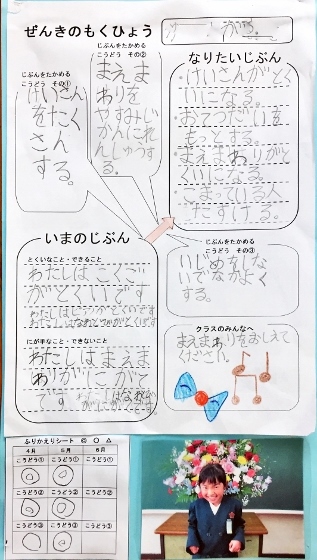 ぜんきのもくひょう
がる。
じぶんをたかめる
こうどう その①
けいさん
をたく
さん
する。
じぶんをたかめる
こうどう その②
まえま
わりを
やすみじ
かんにれ
んしゅうす
る。
なりたいじぶん
・けいさんがとく
いになる。
・おてつだいを
もっとする。
・まえまわりがと
くいになる。
・こまっている人
たすける。
いまのじぶん
とくいなこと・できること
わたしはこくご
がとくいです
にが手なこと・できないこと
わたしはまえま
わりがにがて
です
じぶんをたかめる
こうどう その③
いじめをしな
いでなかよく
する。
クラスのみんなへ
まえまわりをおしえて
ください。
ふりかえりシート ◎ ○ △
4月 5月 6月
こうどう① こうどう① こうどう①
こうどう② こうどう② こうどう②
こうどう③ こうどう③ こうどう③